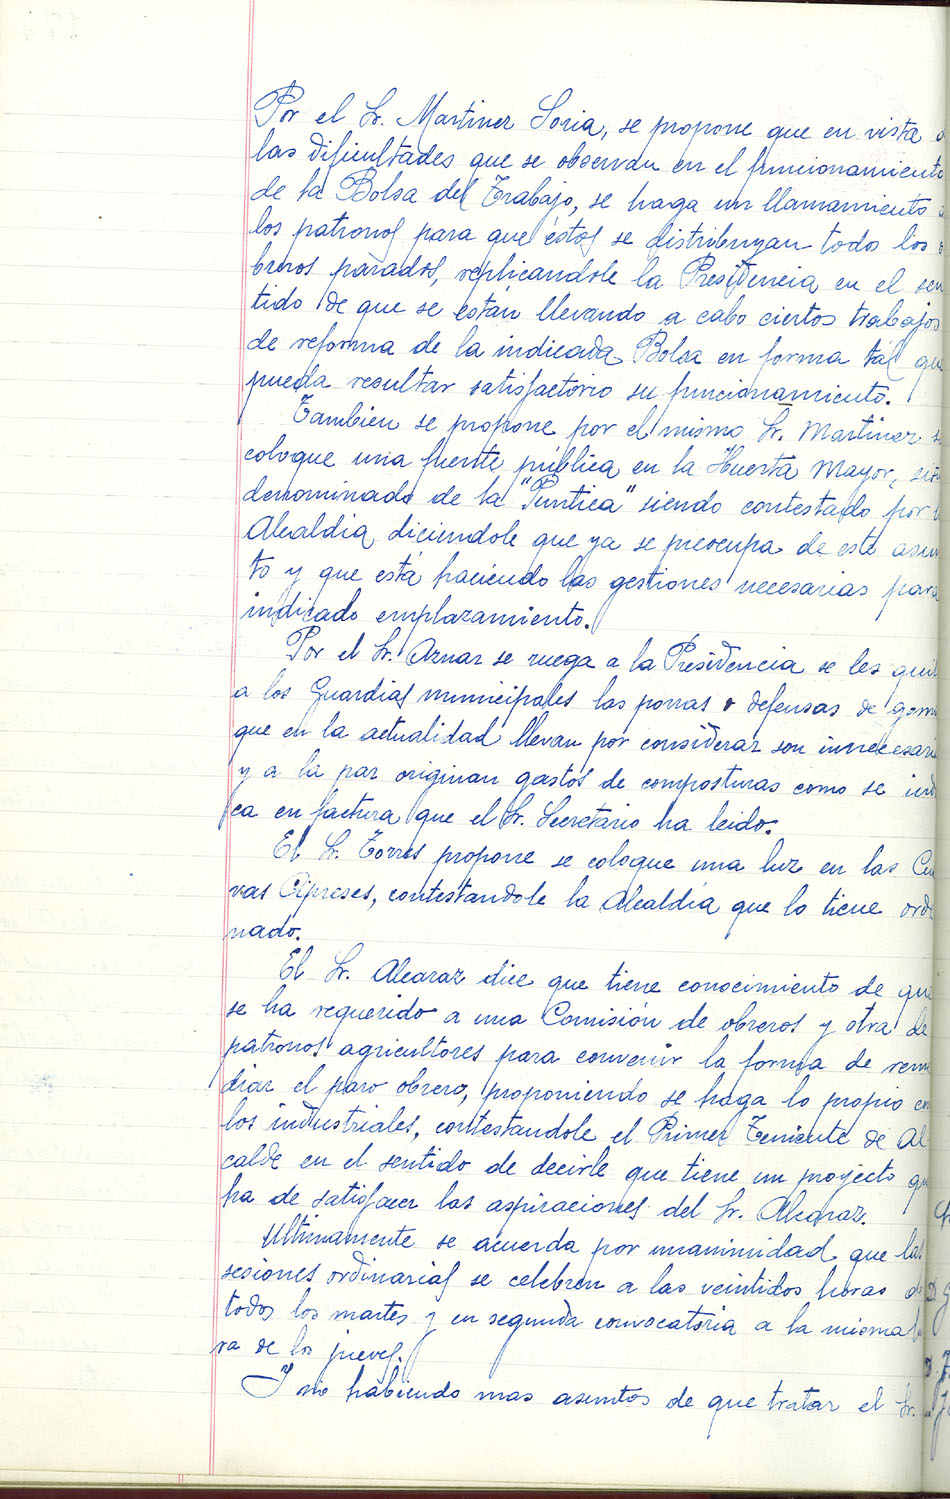 Por el Sr. Martinez Soria, se propone que en vista
las dificultades que se observan en el funcionamiento
de la Bolsa del Trabajo, se haga un llamamiento
los patronos para que éstos se distribuyan todos los
breros parados, replicandole la Presidencia en el sen
tido de que se están llevando a cabo ciertos trabajos
de reforma de la indicada Bolsa en forma tál que
pueda resultar satisfactorio su funcionamiento.
Tambien se propone por el mismo Sr. Martinez
coloque una fuente pública en la Huerta Mayor,
denominado de la "Puntica" siendo contestado por
Alcaldia, diciendole que ya se preocupa de este asun
to y que está haciendo las gestiones necesarias para
indicado emplazamiento.
Por el Sr. Aznar se ruega a la Presidencia se les qui
a los Guardias municipales las porras o defensas de gom
que en la actualidad llevan por considerar son innecesari
y a la par originan gastos de composturas como se ind
ca en factura que el Sr. Secretario ha leido.
El Sr. Torres propone se coloque una luz en las Cue
vas Cipreses, contestandole la Alcaldía que lo tiene orde
nado.
El Sr. Alcaraz dice que tiene conocimiento de que
se ha requerido a una Comisión de obreros y otra de
patronos agricultores para convenir la forma de reme
diar el paro obrero, proponiendo se haga lo propio con
los industriales, contestandole el Primer Teniente de Al-
calde en el sentido de decirle que tiene un proyecto qu
ha de satisfacer las aspiraciones del Sr. Alcaraz.
Ultimamente se acuerda por unanimidad que las
sesiones ordinarias se celebren a las veintidos horas de
todos los martes y en segunda convocatoria a la misma ho
ra de los jueves.
Y no habiendo mas asuntos de que tratar el Sr.